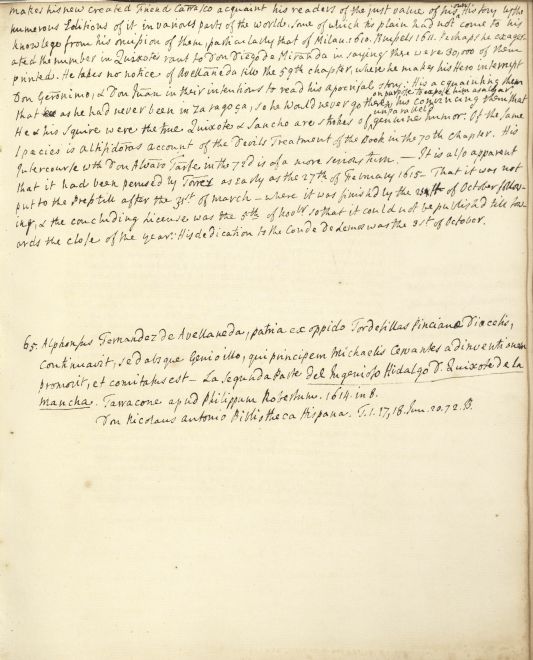 makes his new created friend Carrasco acquaint his readers of the just value of his own History by the
numerous Editions of it in various parts of the world. Some of which his plain had not come to his
knowlege from his omission of them, particularly that of Milan. 1610. Brussels 1611. Perhaps he exager-
ated the number in Quixote's rant to Don Diego de Miranda in saying there were 30,000 of them
printed. He takes no notice of Avellaneda till the 59th chapter, where he makes his Hero interrupt
Don Geronimo, & Don Juan in their intentions to read his apocriful story: His acquainting them
that as he had never been in Zaragoça, so he would never go there, on purpose to expose him as a liar,
& his convincing them that
He & his Squire were the true Quixote & Sancho are strokes of unparalleld genuine humor. Of the same
species is Altisidoras account of the Devils Treatment of the Book in the 70th Chapter. His
Intercourse wth Don Alvaro Tarfe in the 72d is of a more serious turn. — It is also apparent
that it had been perused by Torres as early as the 27th of February 1615 – That it was not
put to the Press till after the 31st of March – where it was finished by the 21st of October follow-
ing, & the concluding License was the 5th of Novbr so that it could not be published till tow-
ards the close of the year. His dedication to the Conde De Lemos was the 31st of October.
65. Alphonsus Fernandez de Avellaneda, patria ex oppido Tordesillas Pincianæ Diœcesis,
Continuavit, sed absque Genio illo, qui principem Michaelis Cervantes adinventionem
promovit, et comitatus est – La Segunda Parte del Ingenioso Hidalgo D. Quixote de la
Mancha. Tarracone apud Philippum Robertum. 1614. in 8.
Don Nicolaus Antonio Bibliotheca Hispana. T. 1. 17, 18. Jun. 20. 72. B.